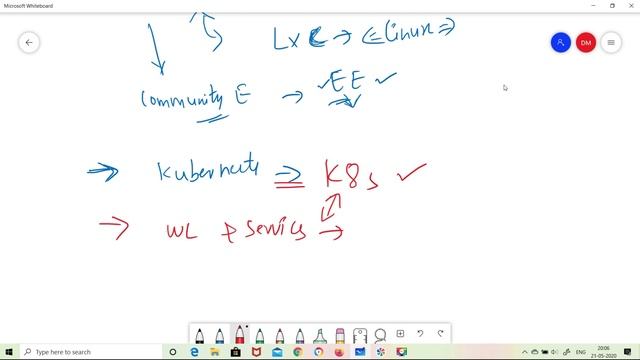 Microsoft Whiteboard
DM
LXC → Linux ⇒
Community E → EE ✓
→ Kubernets ⇒ K8s ✓
→ WL & Services →
Type here to search
ENG
20:06
21-05-2020